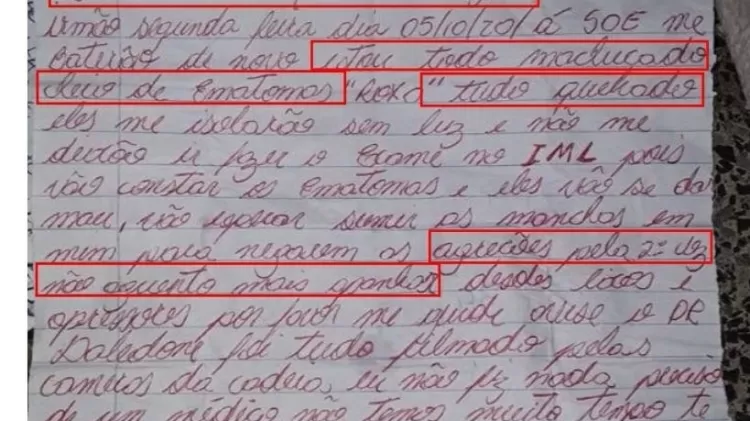 irmão segunda feira dia 05/10/20/ á SOE me
baterão de novo estou todo machucado
cheio de Ematomas "ROXO" tudo quebrado
eles me isolarão sem luz e não me
deixão ir fazer o Exame no IML pois
vão constar os Ematomas e eles vão se dar
mau, vão esperar sumir as manchas em
mim para negarem as agreções pela 2ª vez
não aguento mais apanhar desdes lixos e
opressores por favor me ajude avise o DR
Daledone foi tudo filmado pelas
cameras da cadeia, eu não fiz nada, preciso
de um médico não temos muito tempo te